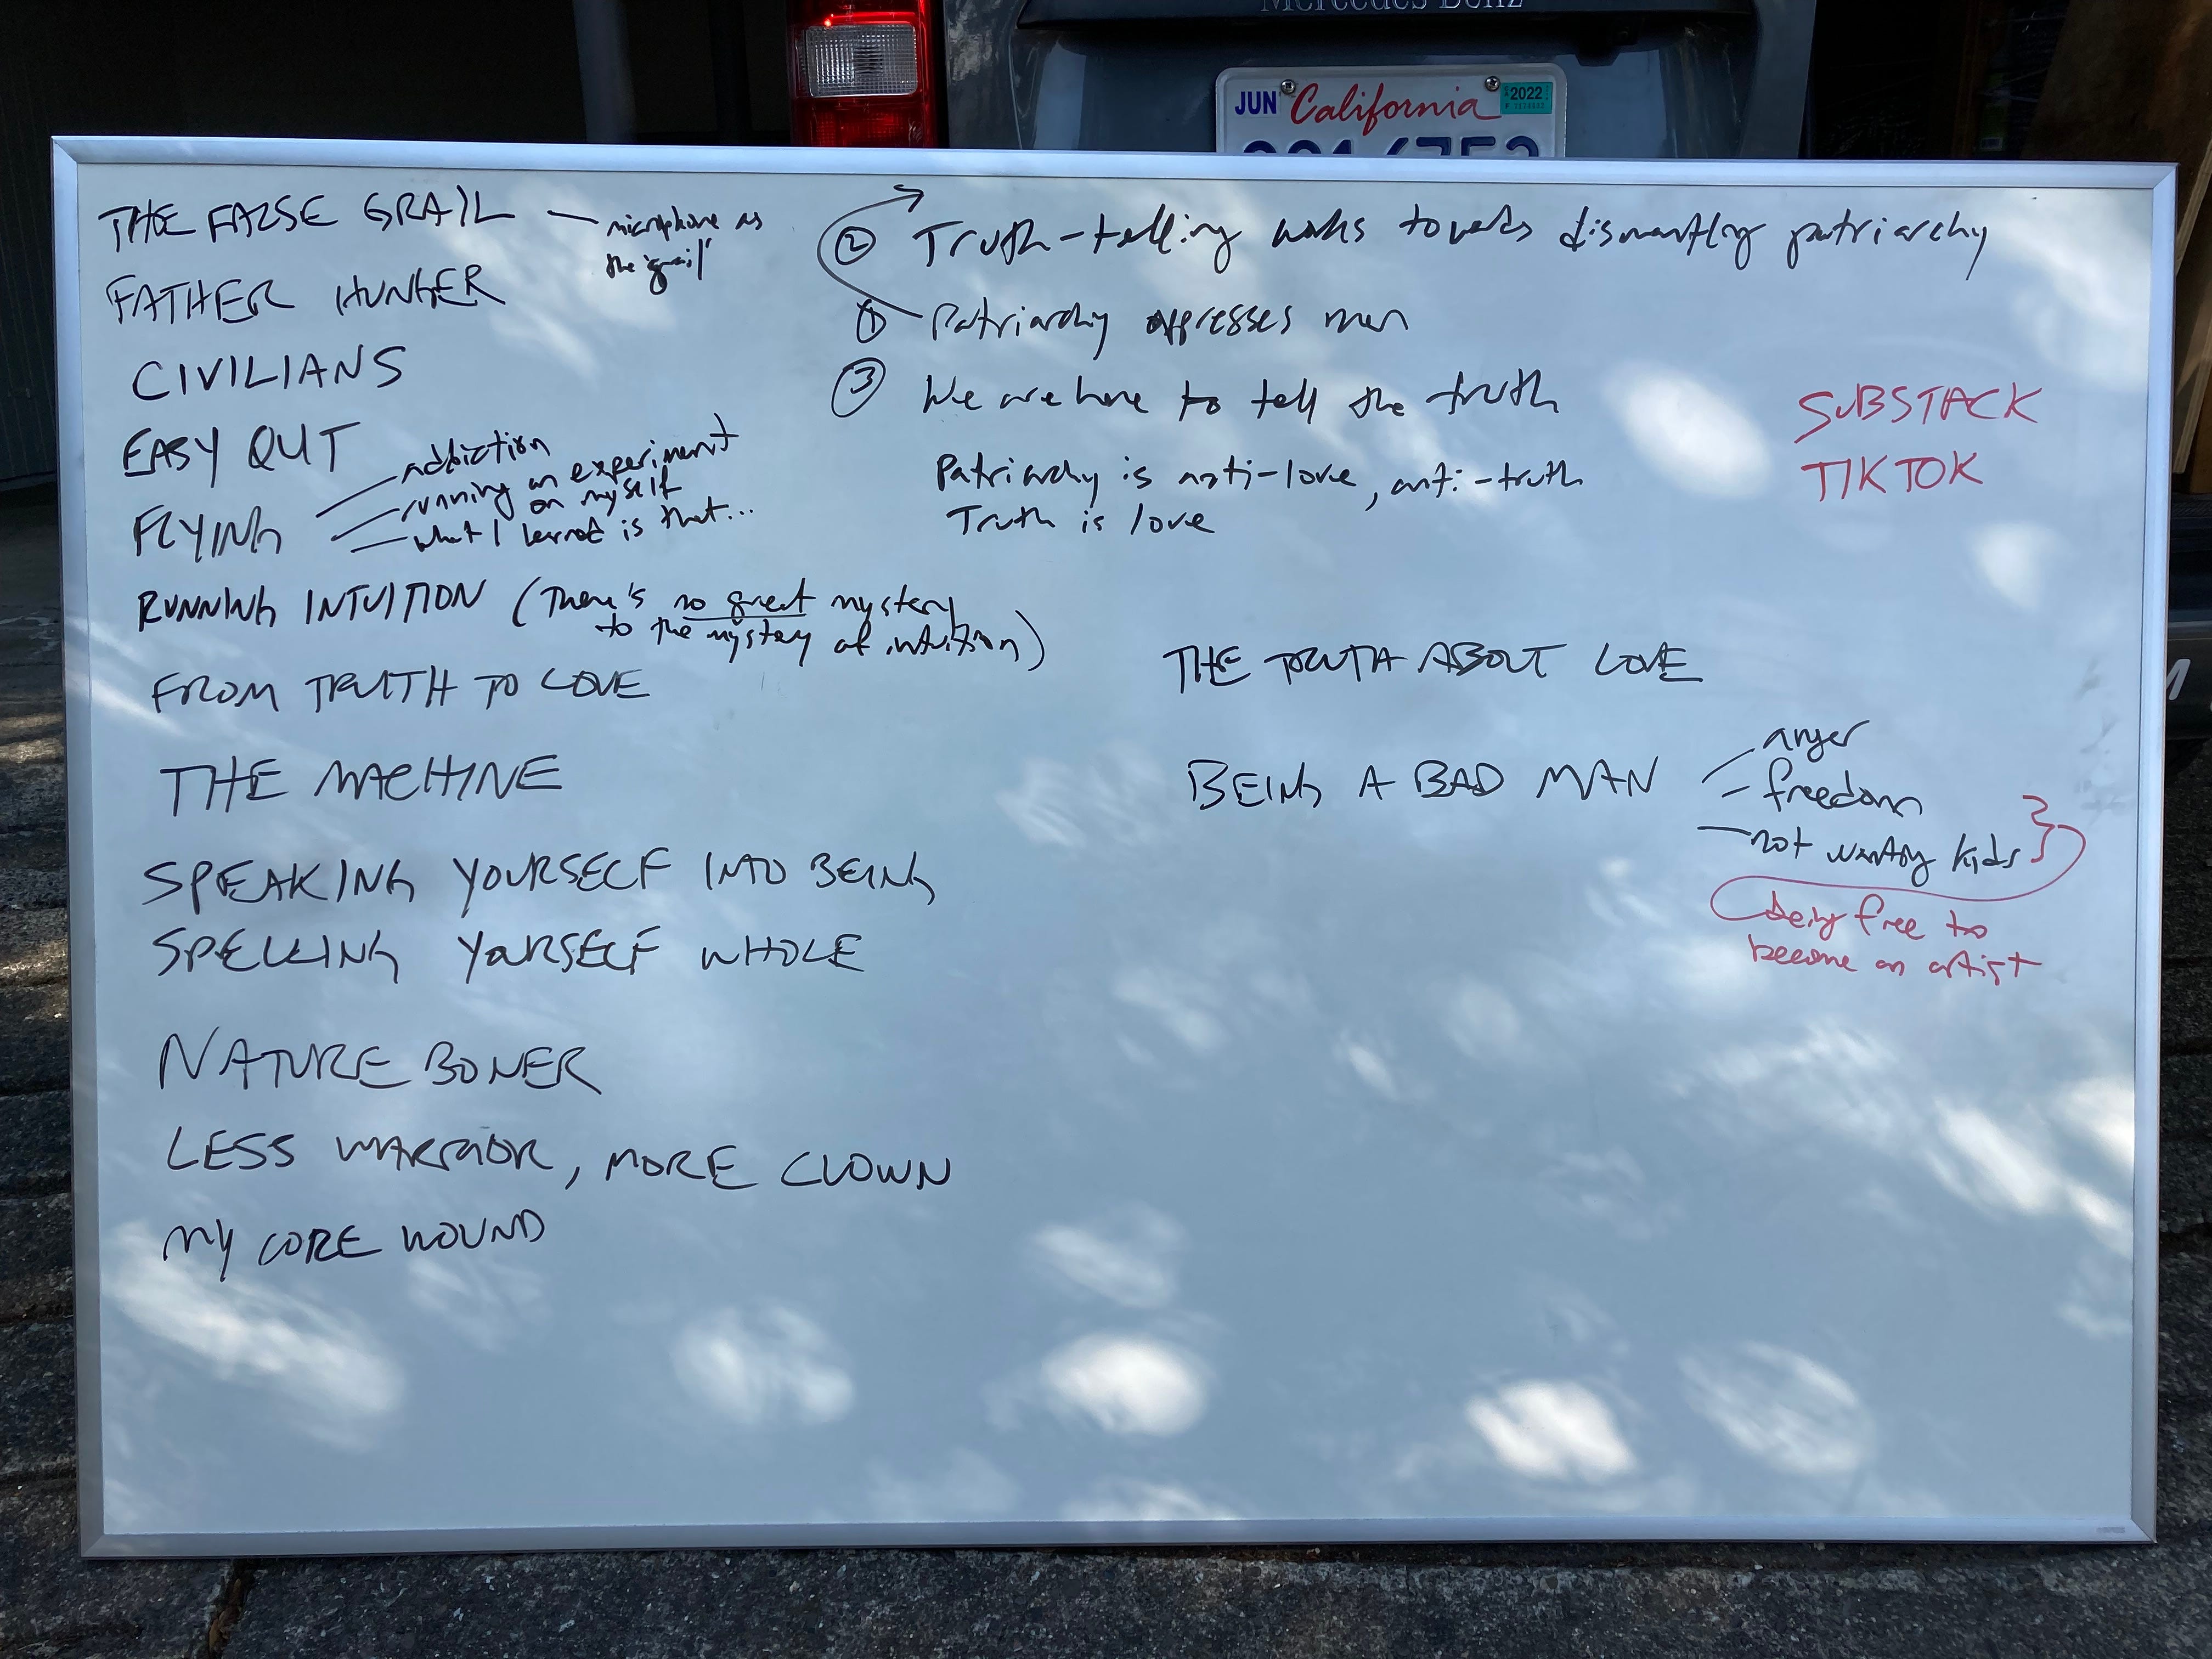 Mercedes-Benz
JUN California 2022
THE FALSE GRAIL — microphone as
the 'grail'
FATHER HUNGER
CIVILIANS
EASY QUIT
FLYING
addiction
running an experiment
on myself
what I learned is that...
RUNNING INTUITION (There's no great mystery
to the mystery of intuition)
FROM TRUTH TO LOVE
THE MACHINE
SPEAKING YOURSELF INTO BEING
SPELLING YOURSELF WHOLE
NATURE BONER
LESS WARRIOR, MORE CLOWN
MY CORE WOUND
② Truth-telling works towards dismantling patriarchy
① Patriarchy oppresses men
③ We are here to tell the truth
Patriarchy is anti-love, anti-truth
Truth is love
SUBSTACK
TIKTOK
THE TRUTH ABOUT LOVE
BEING A BAD MAN
– anger
– freedom
– not wanting kids
being free to
become an artist